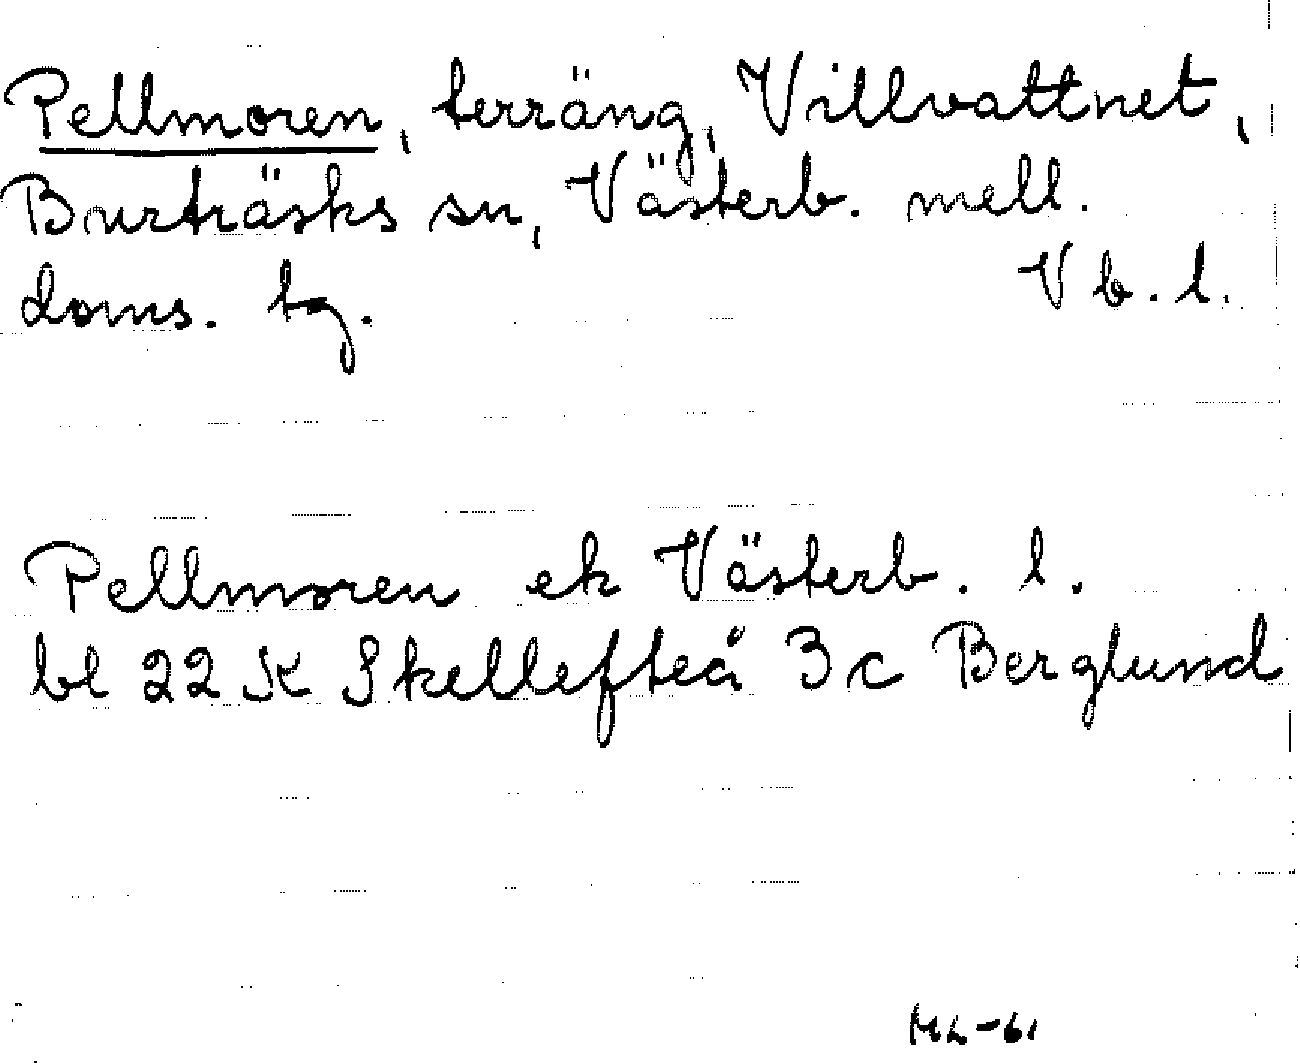 Pellmoren, terräng, Villvattnet,
Burträsks sn, Västerb. mell.
doms. tg. Vb. l.
Pellmoren ek Västerb. l.
bl 22 K Skellefteå 3 c Berglund
ML-61